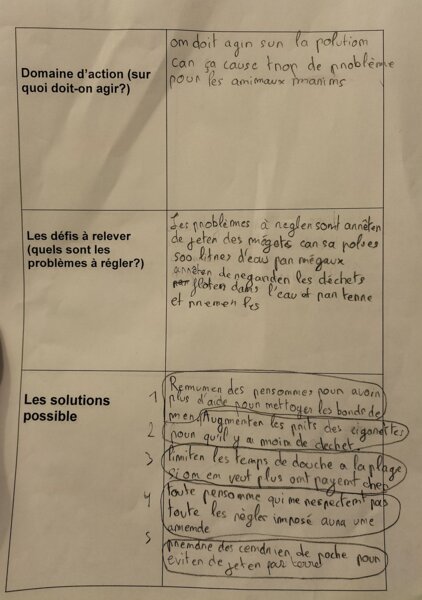 Domaine d'action (sur
quoi doit-on agir?)
on doit agir sur la polution
car ça cause trop de problème
pour les animaux marins
Les défis à relever
(quels sont les
problèmes à régler?)
Les problèmes à regler sont arrêter
de jeter des mégots car sa polues
500 litres d'eau par mégaux
arrêter de regarder les déchets
floter dans l'eau et par terre
et
Les solutions
possible
1 Remuner des personnes pour avoir
plus d'aide pour nettoyer les bords de
mer
2 Augmenter les prits des cigarettes
pour qu'il y ai moin de dechet.
3 limiter les temps de douche a la plage
si on en veut plus ont payent cher
4 toute personne qui ne respectent pas
toute les règler imposé aura une
amende
5 prendre des cendrier de poche pour
eviter de jeter par terre